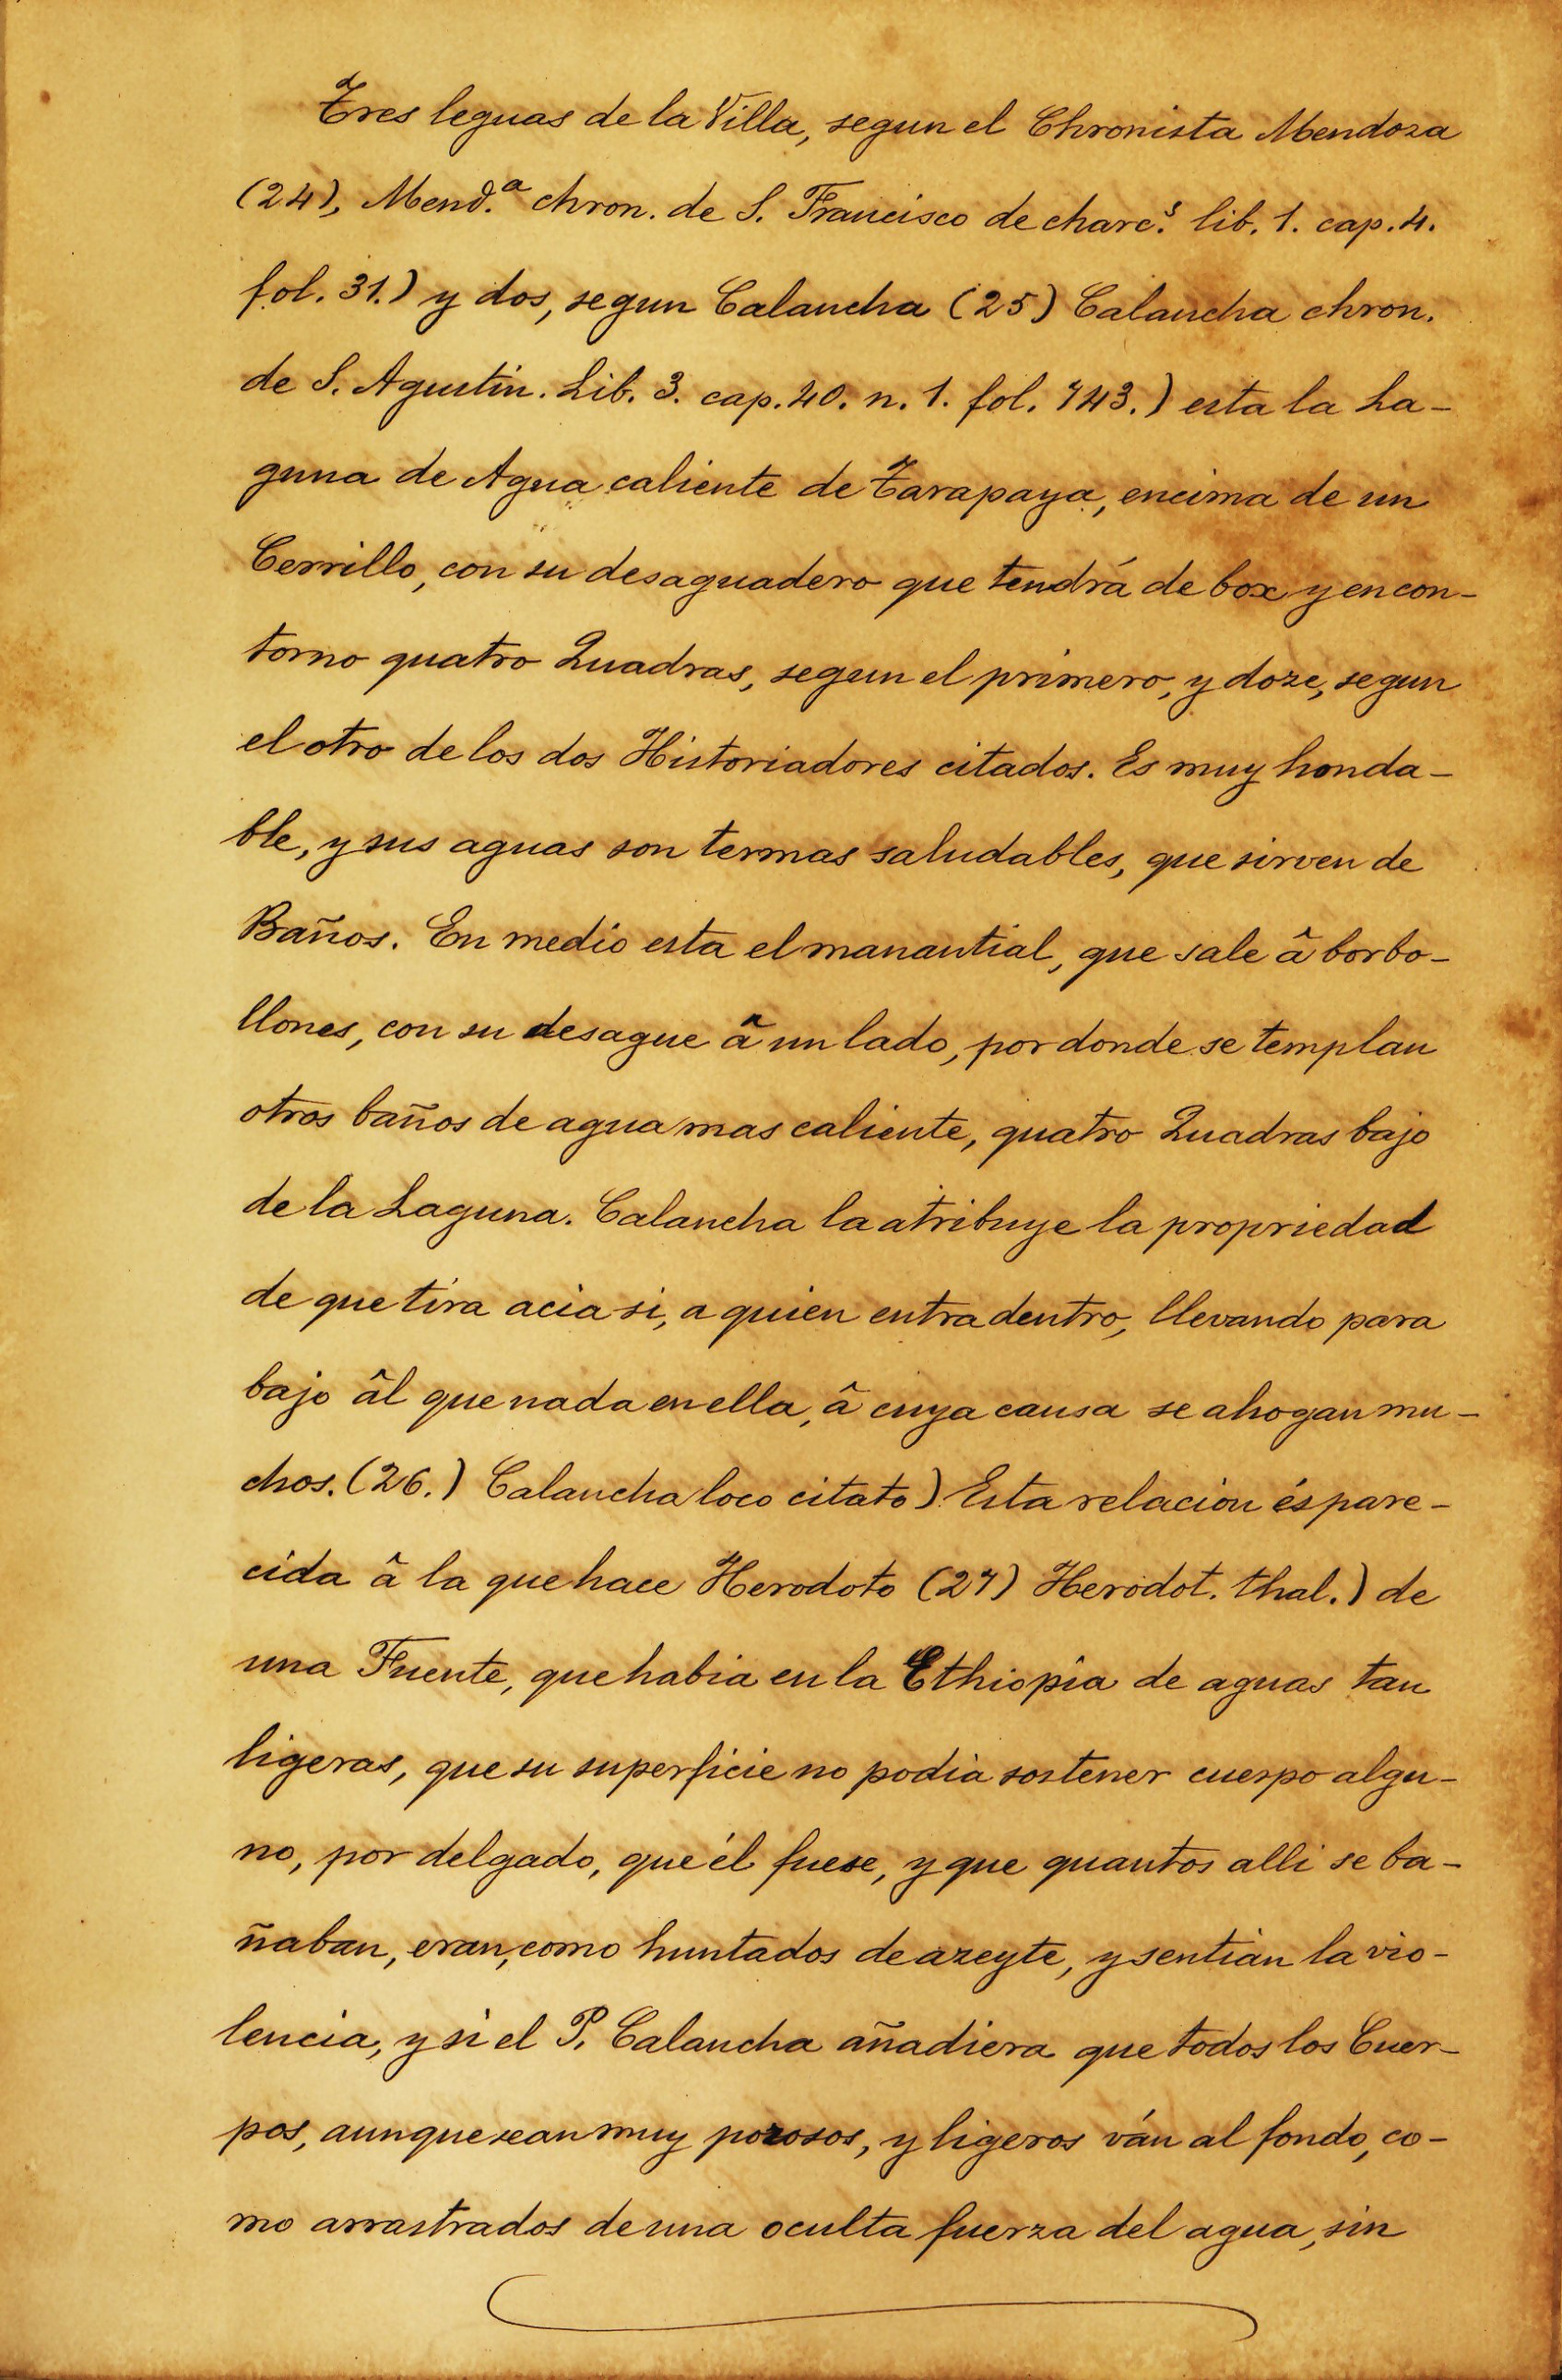 Tres leguas de la Villa, segun el Chronista Mendoza
(24), Mend.ª chron. de S. Francisco de charc.s lib. 1. cap. 4.
fol. 31.) y dos, segun Calancha (25) Calancha chron.
de S. Agustin. Lib. 3. cap. 40. n. 1. fol. 743.) esta la La-
guna de Agua caliente de Tarapaya, encima de un
Cerrillo, con su desaguadero que tendrá de box y en con-
torno quatro Quadras, segun el primero, y doze, segun
el otro de los dos Historiadores citados. Es muy honda-
ble, y sus aguas son termas saludables, que sirven de
Baños. En medio esta el manantial, que sale â borbo-
llones, con su desague â un lado, por donde se templan
otros baños de agua mas caliente, quatro Quadras bajo
de la Laguna. Calancha la atribuye la propriedad
de que tira acia si, a quien entra dentro, llevando para
bajo âl que nada en ella, â cuya causa se ahogan mu-
chos. (26.) Calancha loco citato) Esta relacion és pare-
cida â la que hace Herodoto (27) Herodot. thal.) de
una Fuente, que habia en la Ethiopia de aguas tan
ligeras, que su superficie no podia sostener cuerpo algu-
no, por delgado, que él fuese, y que quantos alli se ba-
ñaban, eran, como huntados de azeyte, y sentian la vio-
lencia, y si el P. Calancha añadiera que todos los Cuer-
pos, aunque sean muy porosos, y ligeros ván al fondo, co-
mo arrastrados de una oculta fuerza del agua, sin